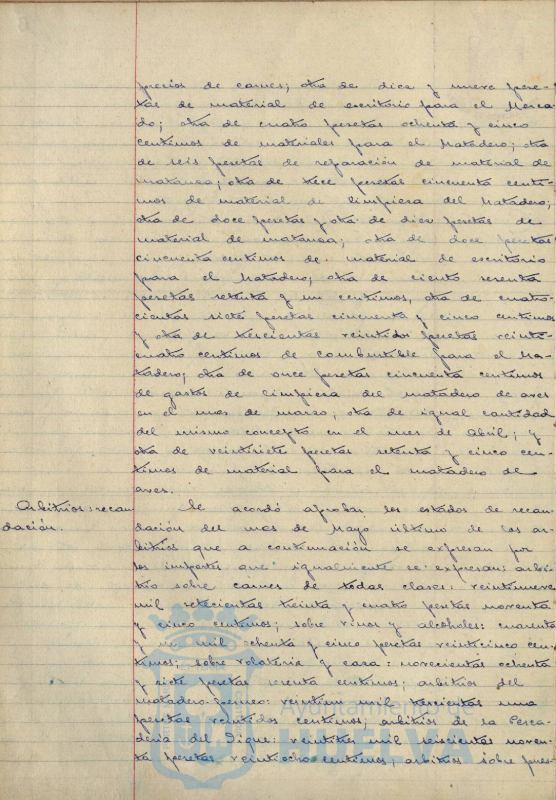 precios de carnes; otra de diez y nueve pese-
tas de material de escritorio para el Merca-
do; otra de cuatro pesetas ochenta y cinco
centimos de materiales para el Matadero; otra
de seis pesetas de reparación de material de
matanza; otra de trece pesetas cincuenta centi-
mos de material de limpieza del Matadero;
otra de doce pesetas y otra de diez pesetas de
material de matanza; otra de doce pesetas
cincuenta centimos de material de escritorio
para el Matadero; otra de ciento sesenta
pesetas setenta y un centimos, otra de cuatro-
cientas siete pesetas cincuenta y cinco centimos
y otra de trescientas veintidos pesetas veinti-
cuatro centimos de combustible para el Ma-
tadero; otra de once pesetas cincuenta centimos
de gastos de limpieza del matadero de aves
en el mes de marzo; otra de igual cantidad
del mismo concepto en el mes de Abril; y
otra de veintisiete pesetas setenta y cinco cen-
timos de material para el matadero de
aves.
Arbitrios: recau
dación.
Se acordó aprobar los estados de recau-
dación del mes de Mayo último de los ar-
bitrios que a continuación se expresan por
los importes que igualmente se expresan: arbi-
trio sobre carnes de todas clases: veintinueve
mil setecientas treinta y cuatro pesetas noventa
y cinco centimos; sobre vinos y alcoholes: cuarenta
y un mil ochenta y cinco pesetas veinticinco cen-
timos; sobre volateria y caza: novecientas ochenta
y siete pesetas sesenta centimos; arbitrios del
matadero porcino: veintiun mil trescientas una
pesetas veintidos centimos; arbitrios de la Pesca-
deria del Dique: veintitres mil seiscientas noven-
ta pesetas veintiocho centimos; arbitrios sobre pues-
Ayuntamiento de
HUELVA